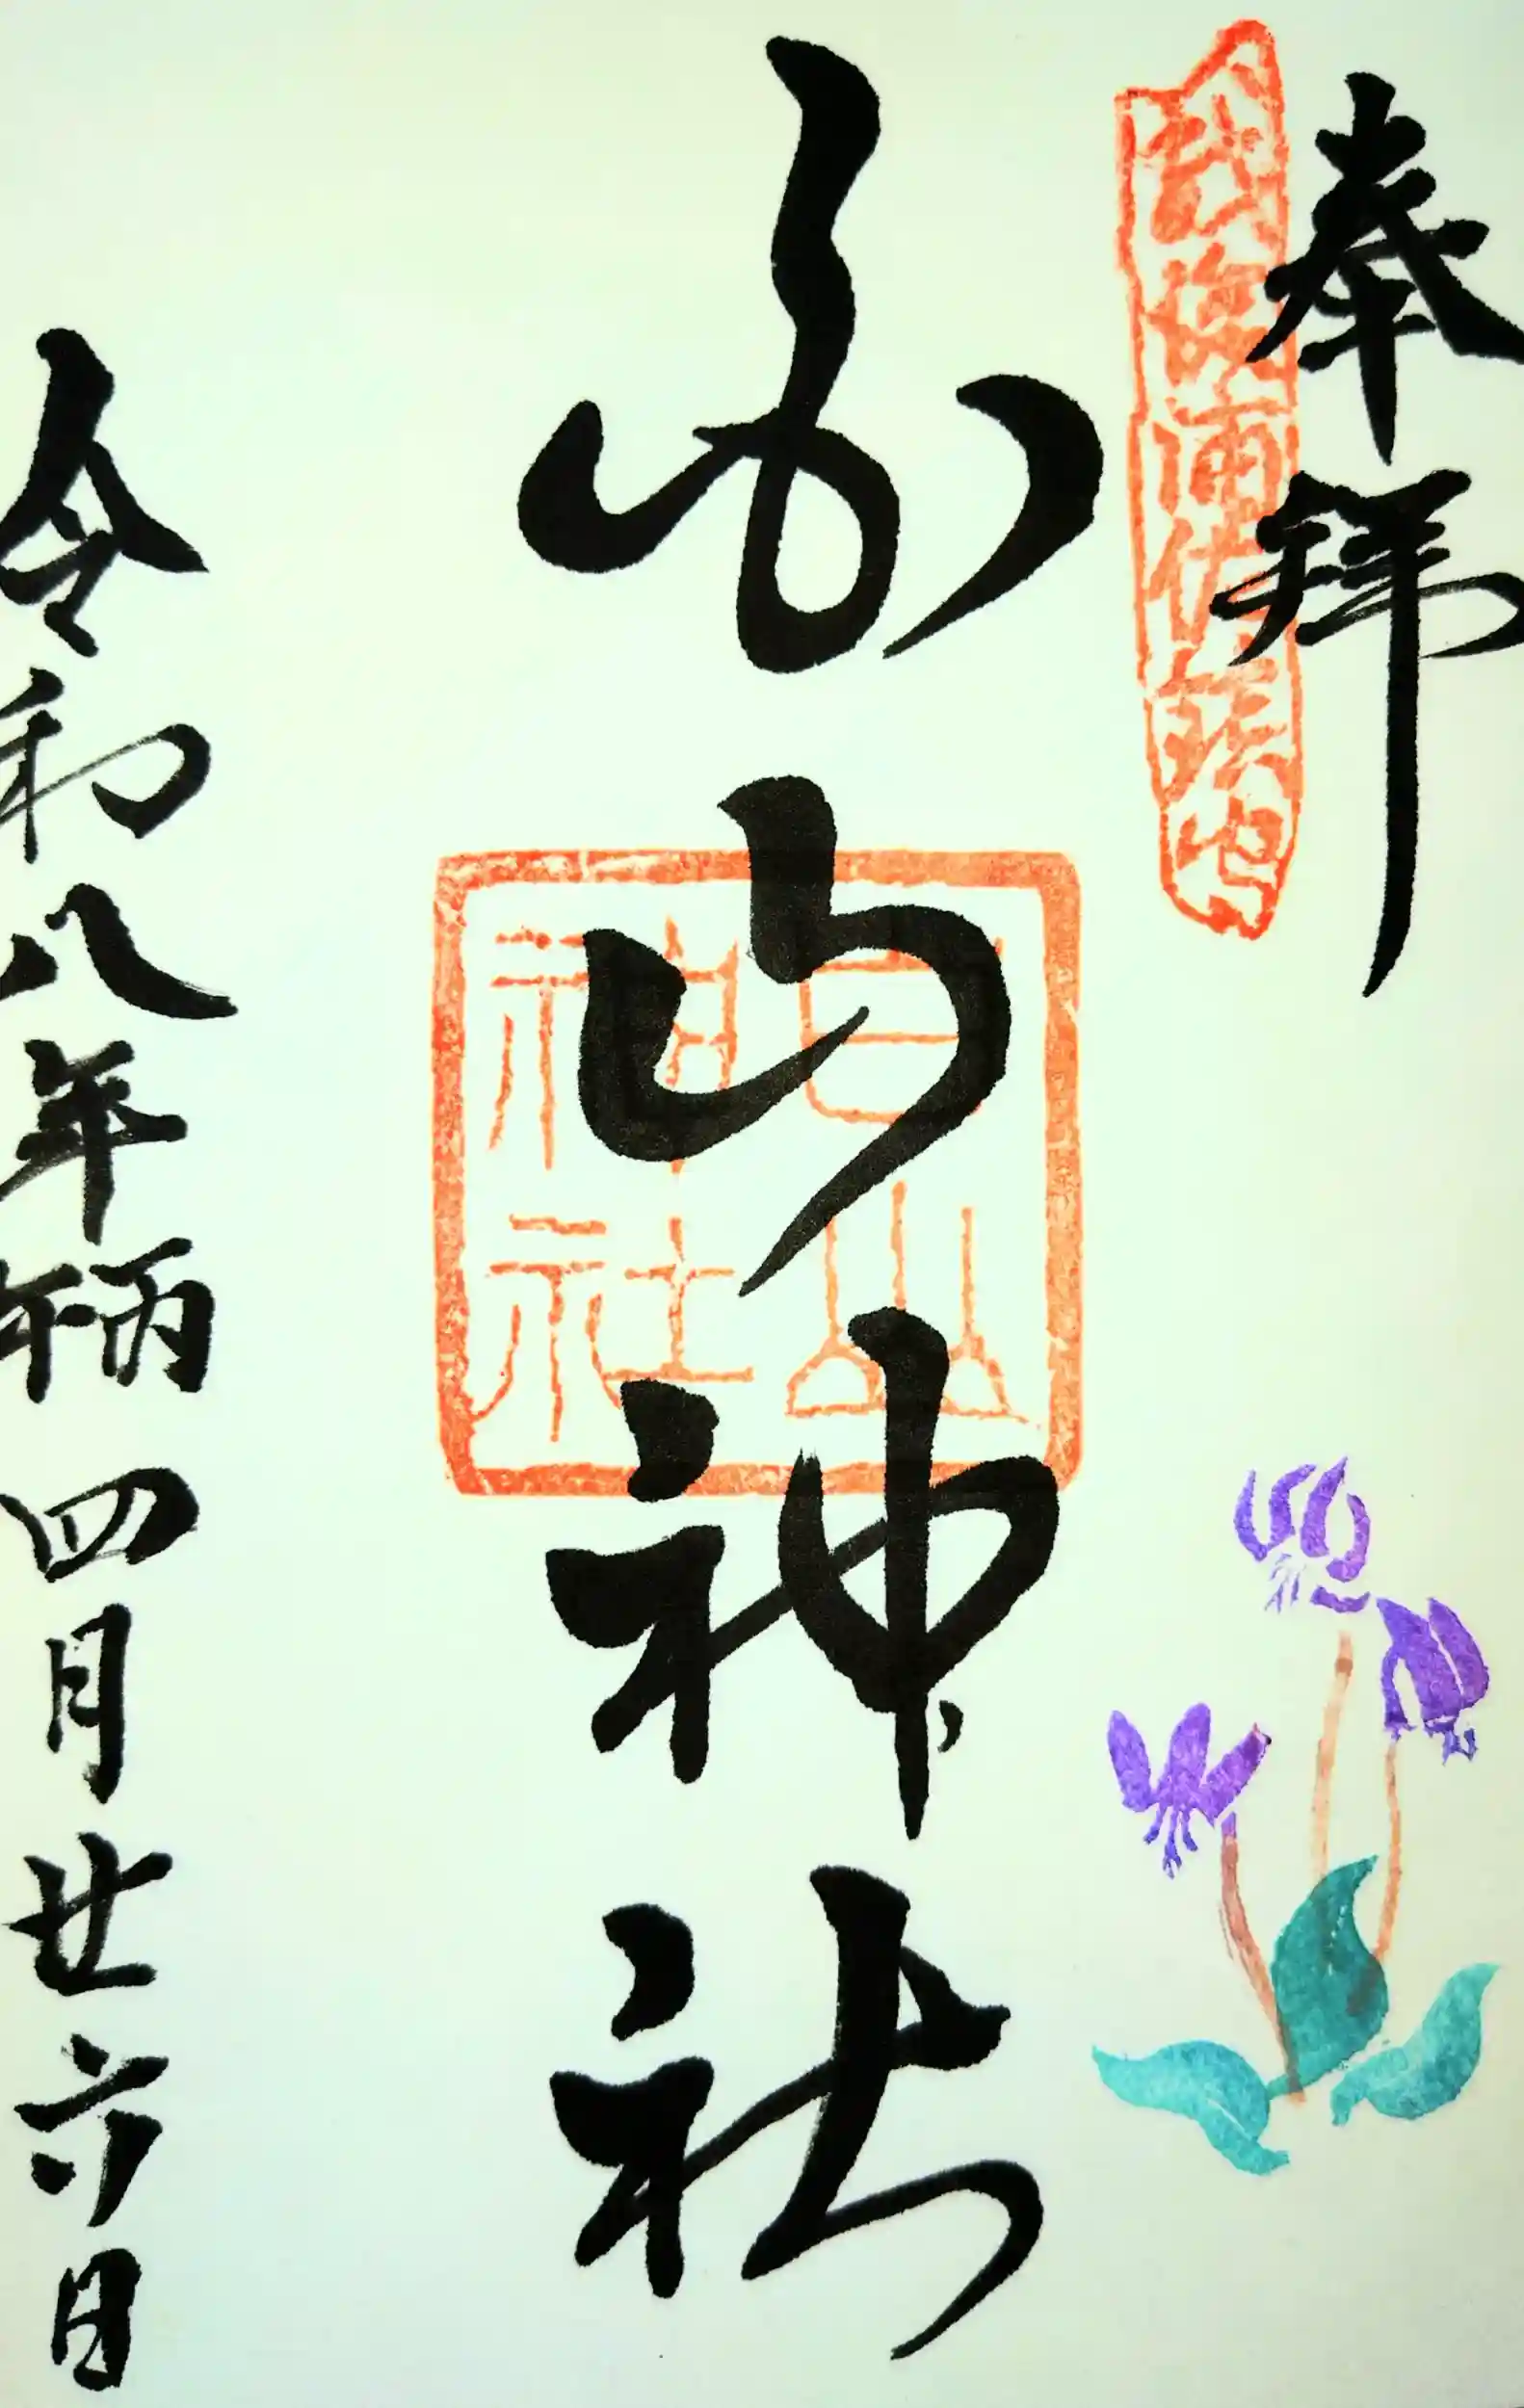 奉拝
白山神社
白山
神社
令和八年丙午四月廿六日